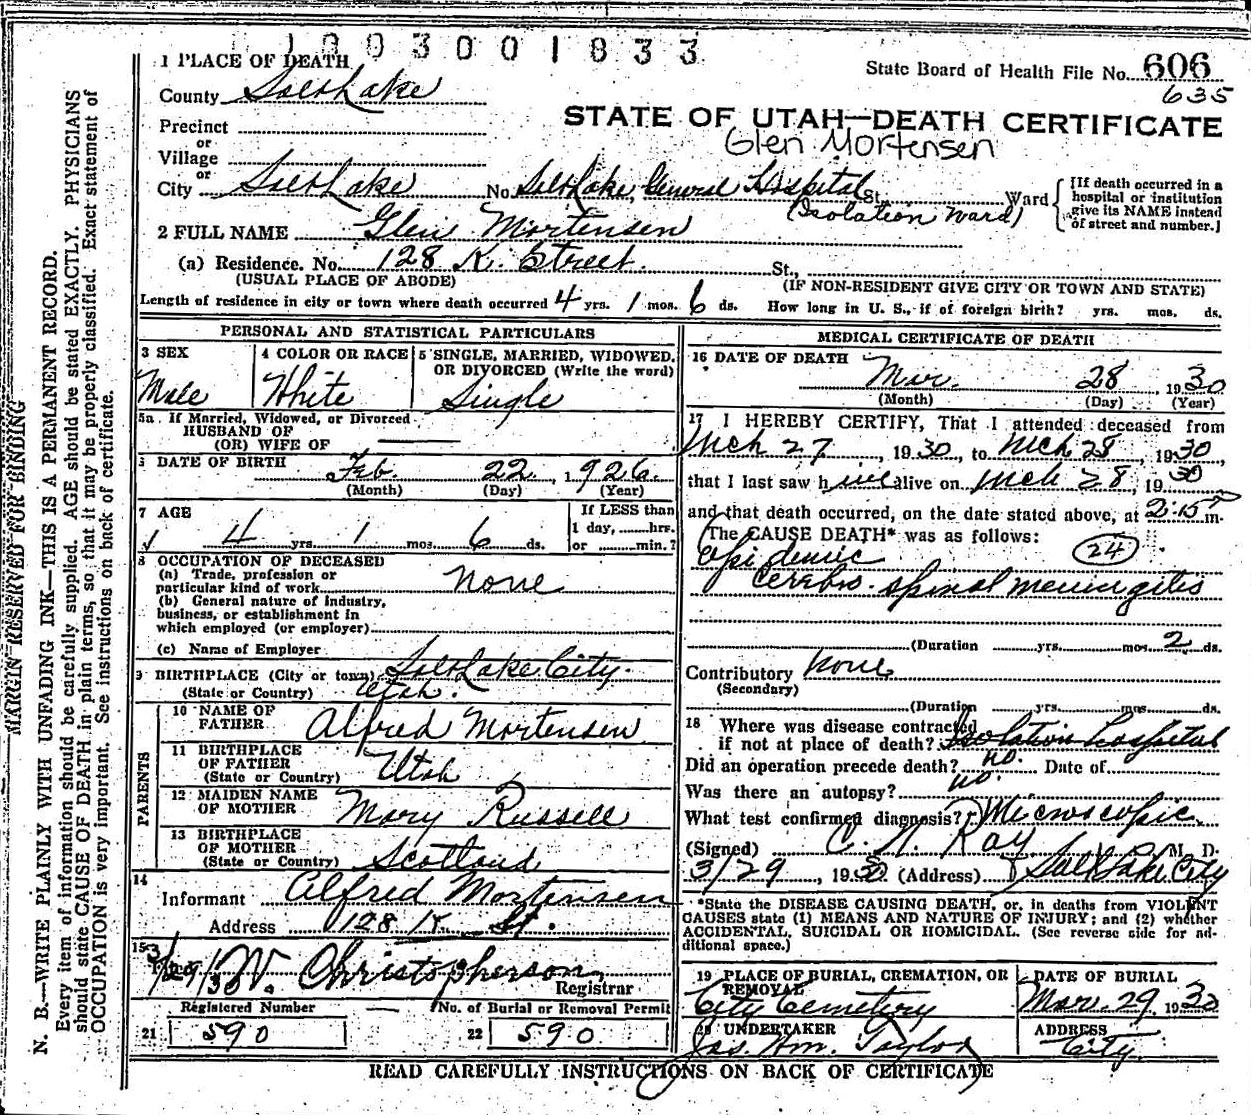 1003001833
1 PLACE OF DEATH
State Board of Health File No. 606
635
County Salt Lake
STATE OF UTAH—DEATH CERTIFICATE
Glen Mortensen
Precinct
or
Village
or
City Salt Lake No. Salt Lake General Hospital St., Ward
(Isolation Ward)
[If death occurred in a
hospital or institution
give its NAME instead
of street and number.]
2 FULL NAME Glen Mortensen
(a) Residence. No. 128 K. Street. St.,
(USUAL PLACE OF ABODE) (IF NON-RESIDENT GIVE CITY OR TOWN AND STATE)
Length of residence in city or town where death occurred 4 yrs. 1 mos. 6 ds. How long in U. S., if of foreign birth? yrs. mos. ds.
PERSONAL AND STATISTICAL PARTICULARS
3 SEX
Male
4 COLOR OR RACE
White
5 SINGLE, MARRIED, WIDOWED,
OR DIVORCED (Write the word)
Single
5a If Married, Widowed, or Divorced
HUSBAND OF
(OR) WIFE OF
DATE OF BIRTH Feb. 22, 1926.
(Month) (Day) (Year)
7 AGE
4 yrs 1 mos. 6 ds.
If LESS than
1 day, hrs.
or min.?
8 OCCUPATION OF DECEASED
(a) Trade, profession or
particular kind of work None
(b) General nature of industry,
business, or establishment in
which employed (or employer)
(c) Name of Employer
9 BIRTHPLACE (City or town) Salt Lake City.
(State or Country) Utah.
PARENTS
10 NAME OF
FATHER Alfred Mortensen
11 BIRTHPLACE
OF FATHER
(State or Country) Utah
12 MAIDEN NAME
OF MOTHER Mary Russell
13 BIRTHPLACE
OF MOTHER
(State or Country) Scotland
14
Informant Alfred Mortensen
Address 128 K. St.
15 W. Christopherson
Registrar
Registered Number
21 590
No. of Burial or Removal Permit
22 590
MEDICAL CERTIFICATE OF DEATH
16 DATE OF DEATH
Mar. 28 1930
(Month) (Day) (Year)
17 I HEREBY CERTIFY, That I attended deceased from
Mch 27, 1930, to Mch 28, 1930,
that I last saw him alive on Mch 28, 1930
and that death occurred, on the date stated above, at 2:15 m.
The CAUSE DEATH* was as follows:
24
epidemic
cerebro-spinal meningitis
(Duration yrs. mos. 2 ds.
Contributory None
(Secondary)
(Duration yrs. mos. ds.
18 Where was disease contracted
if not at place of death? Isolation hospital
Did an operation precede death? no. Date of
Was there an autopsy? no.
What test confirmed diagnosis? Microscopic
(Signed) C. N. Ray M. D.
3/29, 1930 (Address) Salt Lake City
*State the DISEASE CAUSING DEATH, or, in deaths from VIOLENT
CAUSES state (1) MEANS AND NATURE OF INJURY; and (2) whether
ACCIDENTAL, SUICIDAL OR HOMICIDAL. (See reverse side for ad-
ditional space.)
19 PLACE OF BURIAL, CREMATION, OR
REMOVAL
City Cemetery
DATE OF BURIAL
Mar. 29 1930
20 UNDERTAKER
Jas. Wm. Taylor
ADDRESS
City.
READ CAREFULLY INSTRUCTIONS ON BACK OF CERTIFICATE
MARGIN RESERVED FOR BINDING
N. B.—WRITE PLAINLY WITH UNFADING INK—THIS IS A PERMANENT RECORD.
Every item of information should be carefully supplied. AGE should be stated EXACTLY. PHYSICIANS
should state CAUSE OF DEATH in plain terms, so that it may be properly classified. Exact statement of
OCCUPATION is very important. See instructions on back of certificate.